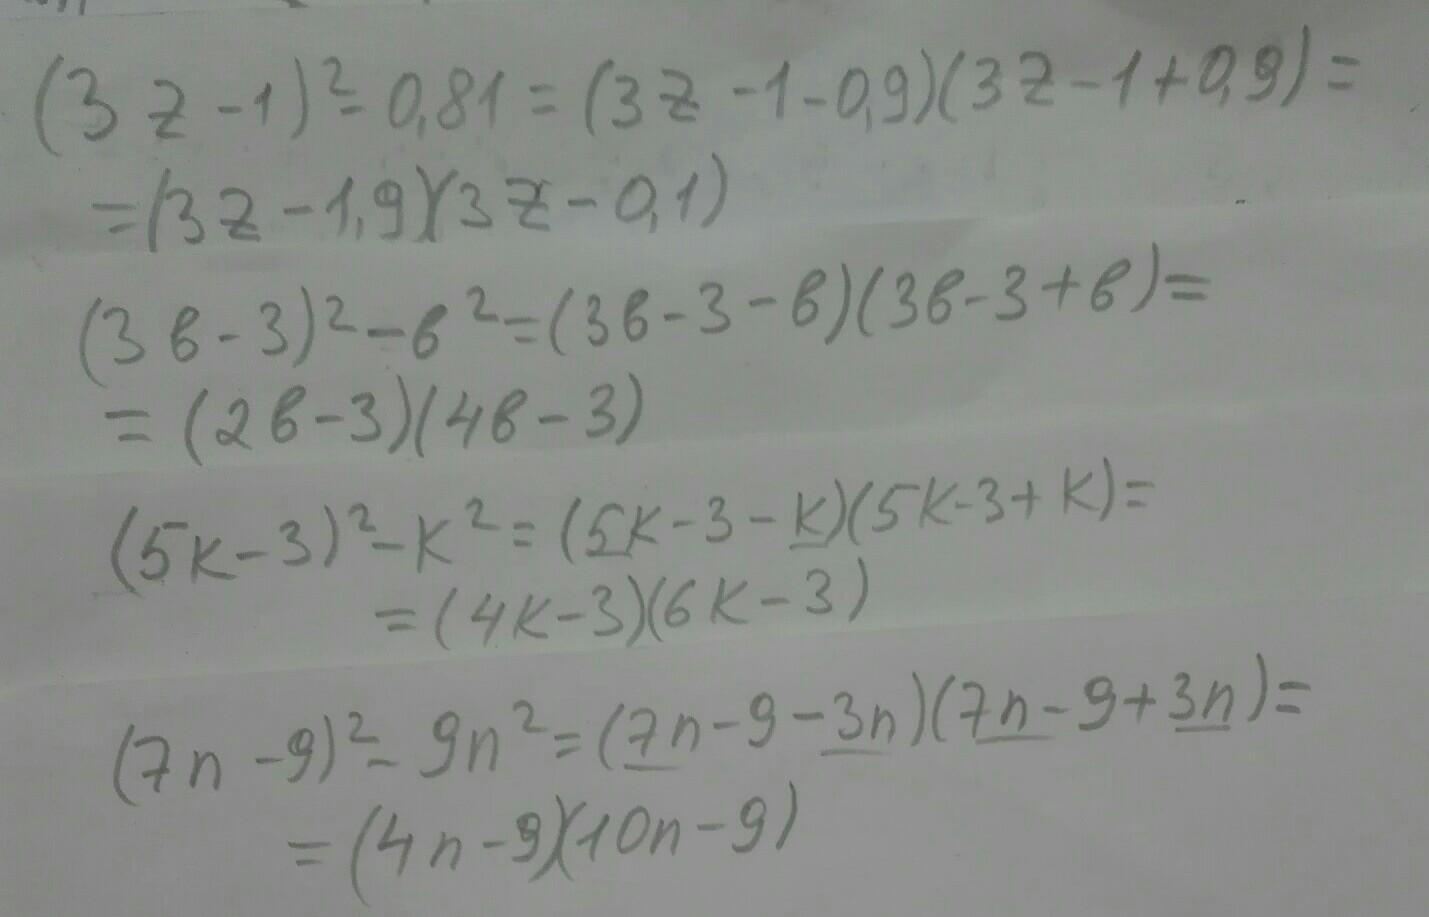 (3z-1)²-0,81=(3z-1-0,9)(3z-1+0,9)=
=(3z-1,9)(3z-0,1)
(3в-3)²-в²=(3в-3-в)(3в-3+в)=
=(2в-3)(4в-3)
(5к-3)²-к²=(5к-3-к)(5к-3+к)=
=(4к-3)(6к-3)
(7n-9)²-9n²=(7n-9-3n)(7n-9+3n)=
=(4n-9)(10n-9)